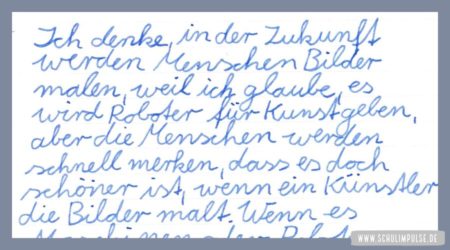 Ich denke, in der Zukunft
werden Menschen Bilder
malen, weil ich glaube, es
wird Roboter für Kunst geben,
aber die Menschen werden
schnell merken, dass es doch
schöner ist, wenn ein Künstler
die Bilder malt. Wenn es
WWW.SCHULIMPULSE.DE